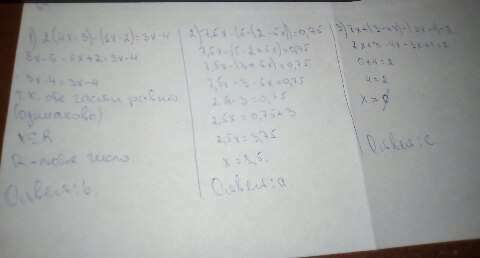 1) 2(4x-3)-(5x-2)=3x-4
8x-6-5x+2=3x-4
3x-4=3x-4
т.к. обе части равны
(одинаковы)
x∈R
R-любое число
Ответ: b.
2) 7,5x-(5-(2-5x))=0,75
7,5x-(3+5x)=0,75
7,5x-3-5x=0,75
2,5x-3=0,75
2,5x=0,75+3
2,5x=3,75
x=1,5.
Ответ: a
4=2
x=∅
Ответ: c